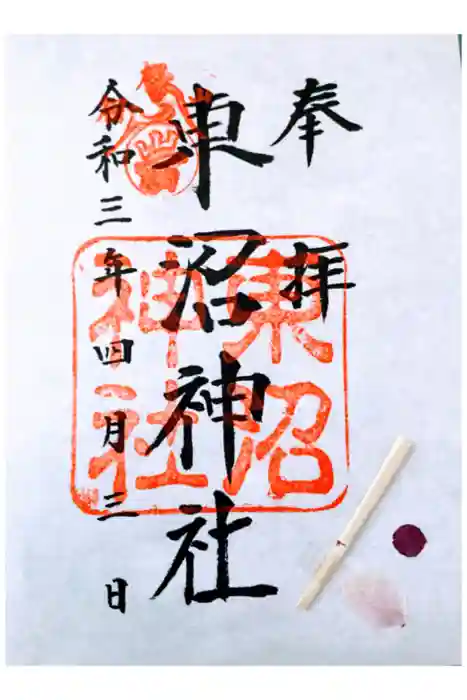 奉拝
東沼神社
令和三年四月三日
東沼
神社